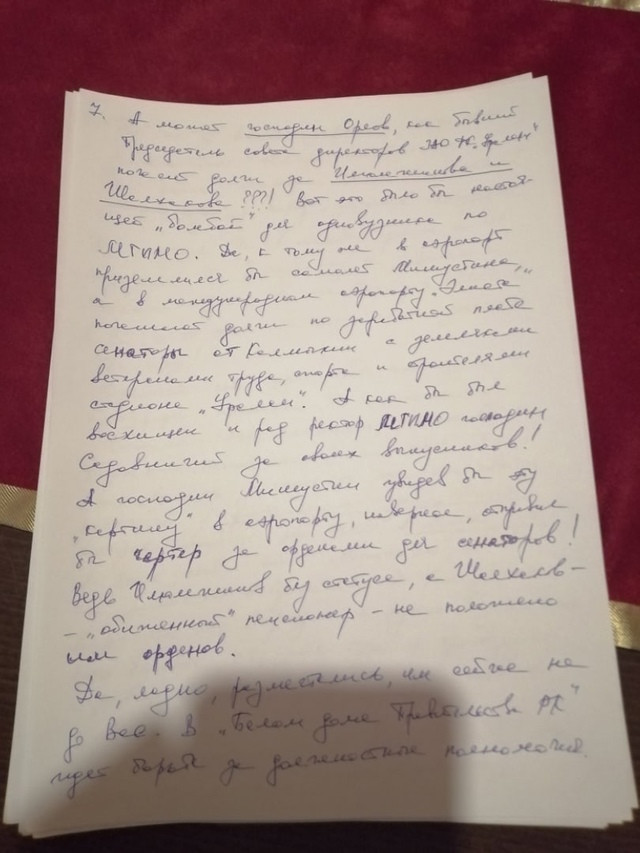 7. А может господин Орлов, как бывший
Председатель совета директоров ЗАО ФК „Уралан"
погасит долги за Илюмжинова и
Шалхакова???! Вот это было бы настоя-
щей „бомбой" для однокурсника по
МГИМО. Да, к тому же в аэропорт
приземлился бы самолет Мишустина,
а в международном аэропорту „Элиста"
погашают долги по заработной плате
сенаторы от Калмыкии с земляками
ветеранами труда, спорта и строителями
стадиона „Уралан". А как бы был
восхищен и рад ректор МГИМО господин
за своих выпускников!
А господин Мишустин увидев бы эту
„картину" в аэропорту, наверное, отправил
бы чартер за орденами для сенаторов!
Ведь Илюмжинов без статуса, а Шалхаков –
– „обиженный" пенсионер – не положено
им орденов.
Да, ладно, размечтались, им сейчас не
до Вас. В „Белом доме Правительства РК"
идет борьба за должностные полномочия.